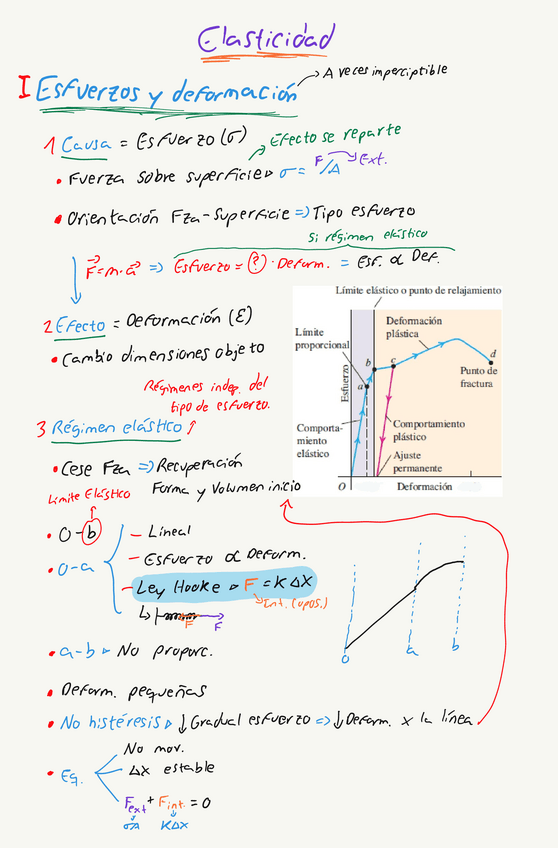 Elasticidad
I Esfuerzos y deformación → A veces imperceptible
1 Causa = Esfuerzo (σ) Efecto se reparte
• Fuerza sobre superficie ▹ σ = F/A → Ext.
• Orientación Fza-Superficie => Tipo esfuerzo
Si régimen elástico
F = m·a => Esfuerzo = ? · Deform. = Esf. α Def.
2 Efecto = Deformación (ε)
• Cambio dimensiones objeto
Regímenes indep. del
tipo de esfuerzo.
Límite elástico o punto de relajamiento
Límite
proporcional
Deformación
plástica
a
b
c
d
Punto de
fractura
Esfuerzo
Comporta-
miento
elástico
Comportamiento
plástico
Ajuste
permanente
O
Deformación
3 Régimen elástico ↑
• Cese Fza => Recuperación
Forma y Volumen inicio
Límite Elástico
• O-b
• O-a
- Lineal
- Esfuerzo α Deform.
- Ley Hooke ▹ F = KΔX
Int. (opos.)
F F
O a b
• a-b ▹ No proporc.
• Deform. pequeñas
• No histéresis ▹ ↓ Gradual esfuerzo => ↓ Deform. x la línea
• Eq.
No mov.
ΔX estable
Fext + Fint. = 0
σA KΔX